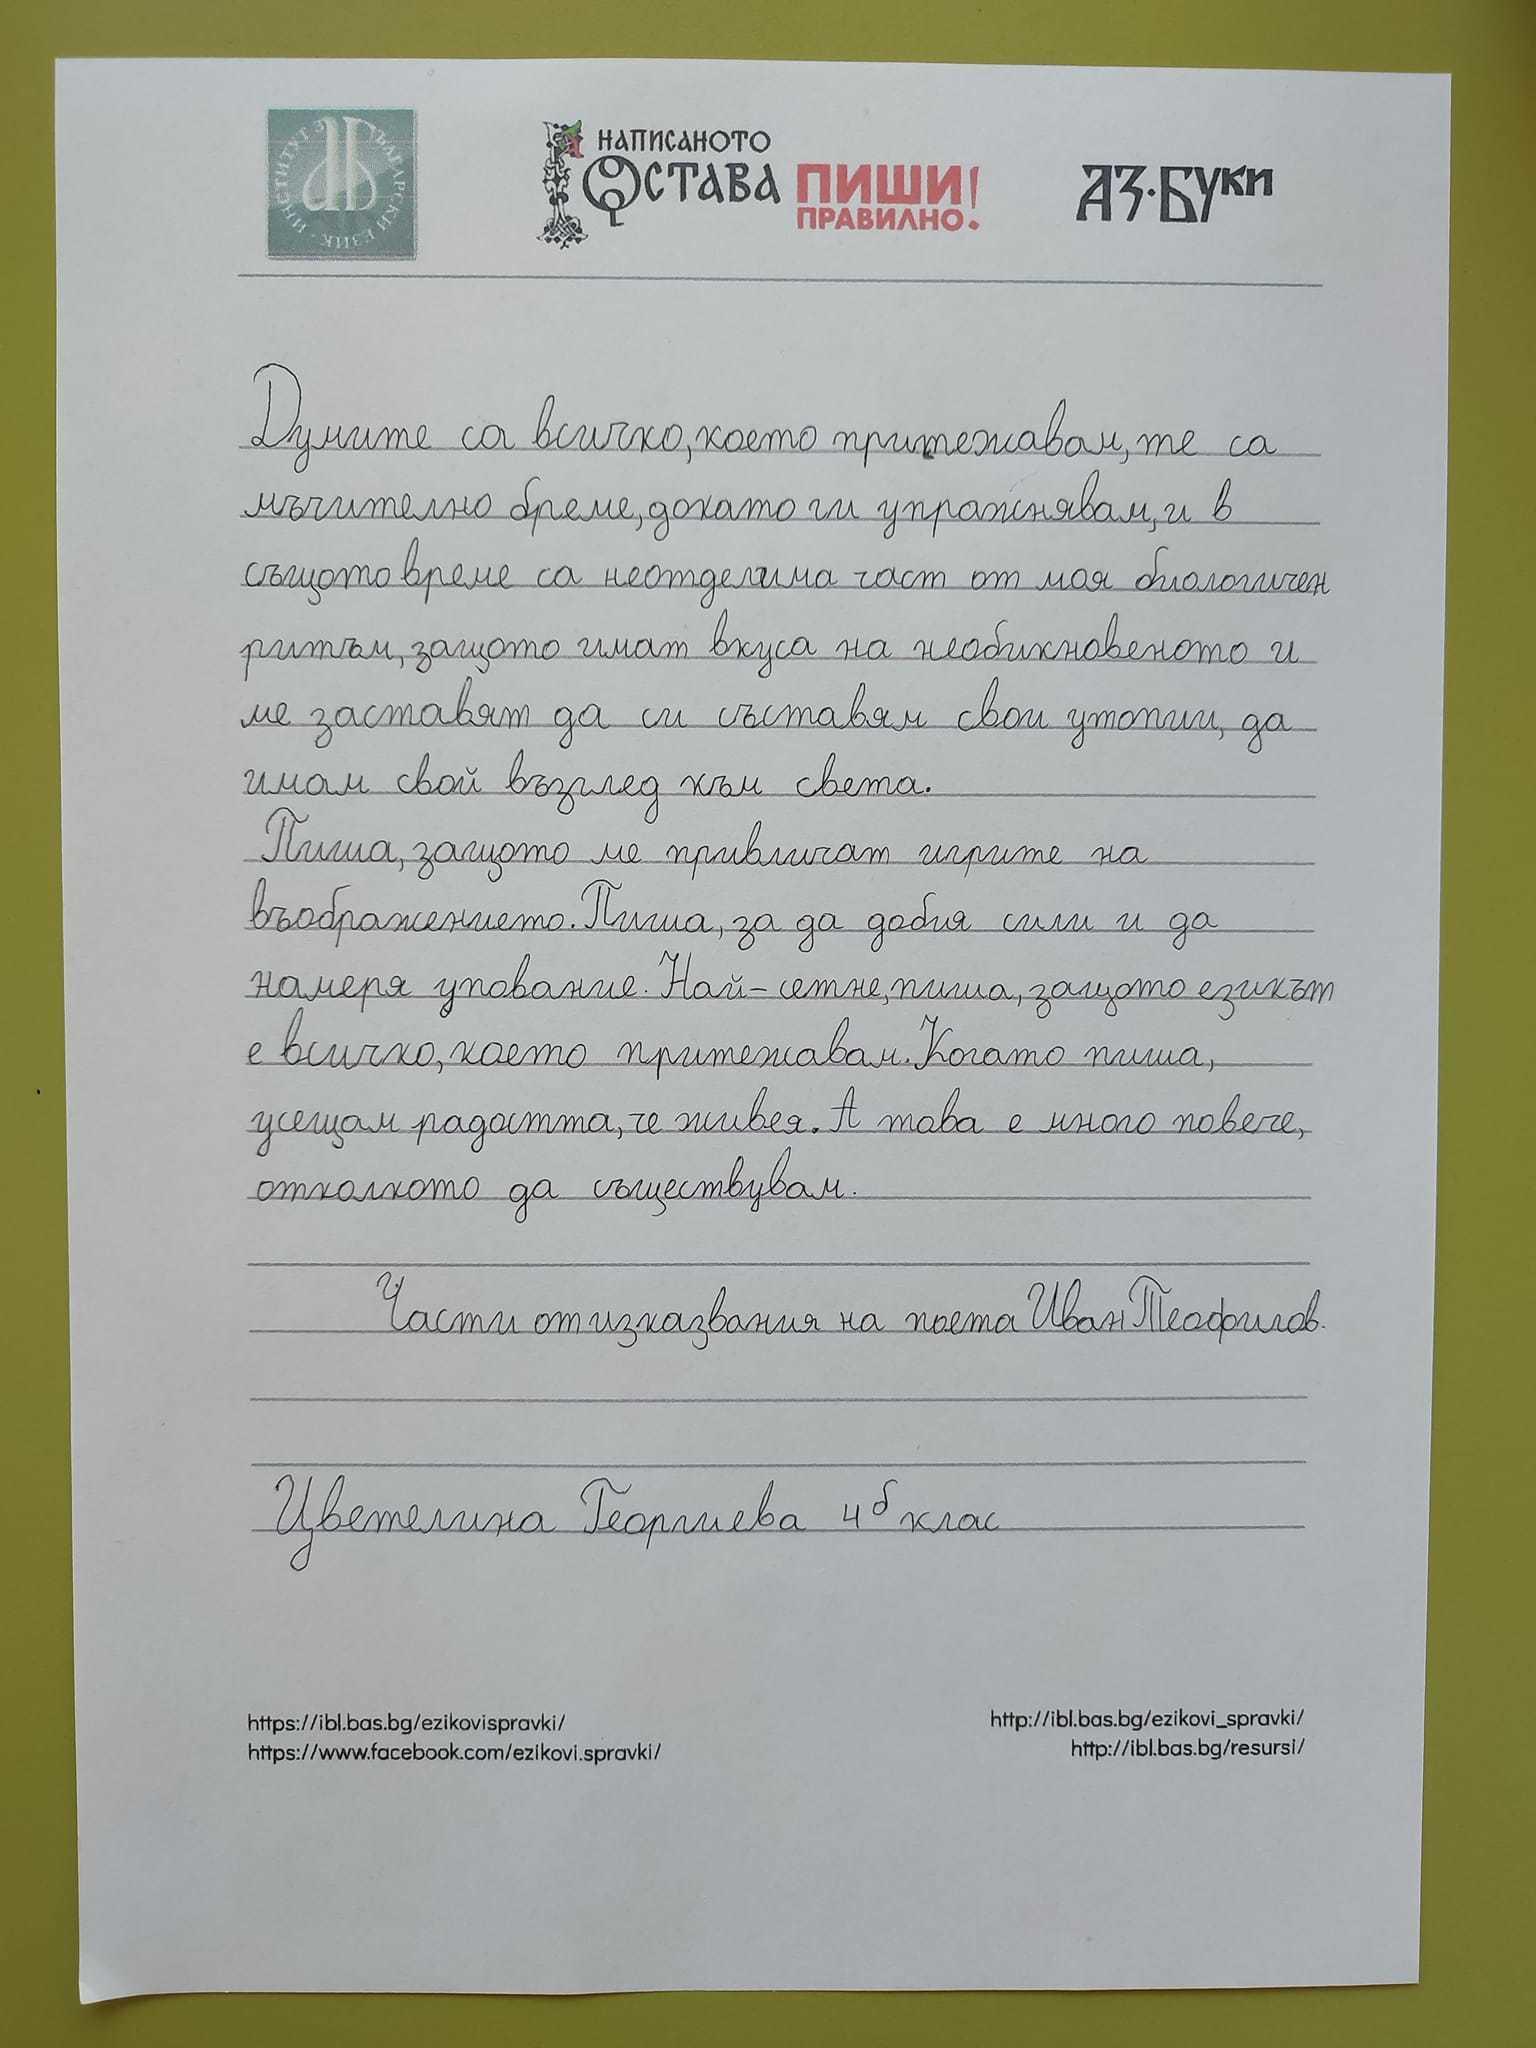 ИНСТИТУТ ЗА БЪЛГАРСКИ ЕЗИК
НАПИСАНОТО
ОСТАВА
ПИШИ
ПРАВИЛНО!
АЗ·БУКИ
Думите са всичко, което притежавам, те са
мъчително бреме, докато ги упражнявам, и в
същото време са неотделима част от моя биологичен
ритъм, защото имат вкуса на необикновеното и
ме заставят да си съставям свои утопии, да
имам свой възглед към света.
Пиша, защото ме привличат игрите на
въображението. Пиша, за да добия сили и да
намеря упование. Най-сетне, пиша, защото езикът
е всичко, което притежавам. Когато пиша,
усещам радостта, че живея. А това е много повече,
отколкото да съществувам.
Части от изказвания на поета Иван Теофилов.
Цветелина Георгиева 4б клас
https://ibl.bas.bg/ezikovispravki/ http://ibl.bas.bg/ezikovi_spravki/
https://www.facebook.com/ezikovi.spravki/ http://ibl.bas.bg/resursi/